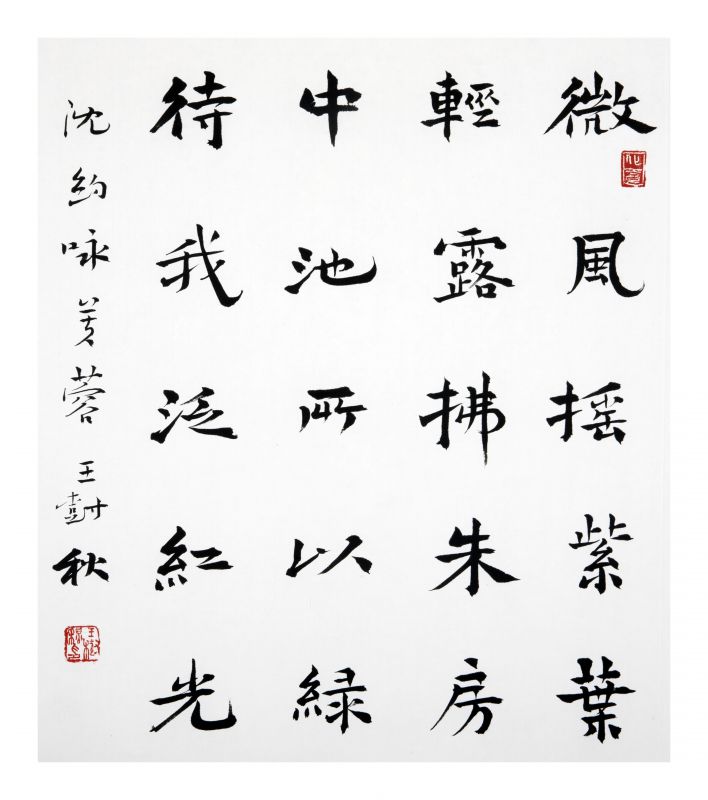 微風摇紫葉
輕露拂朱房
中池所以緑
待我泛紅光
沈約咏芙蓉 王尌秋